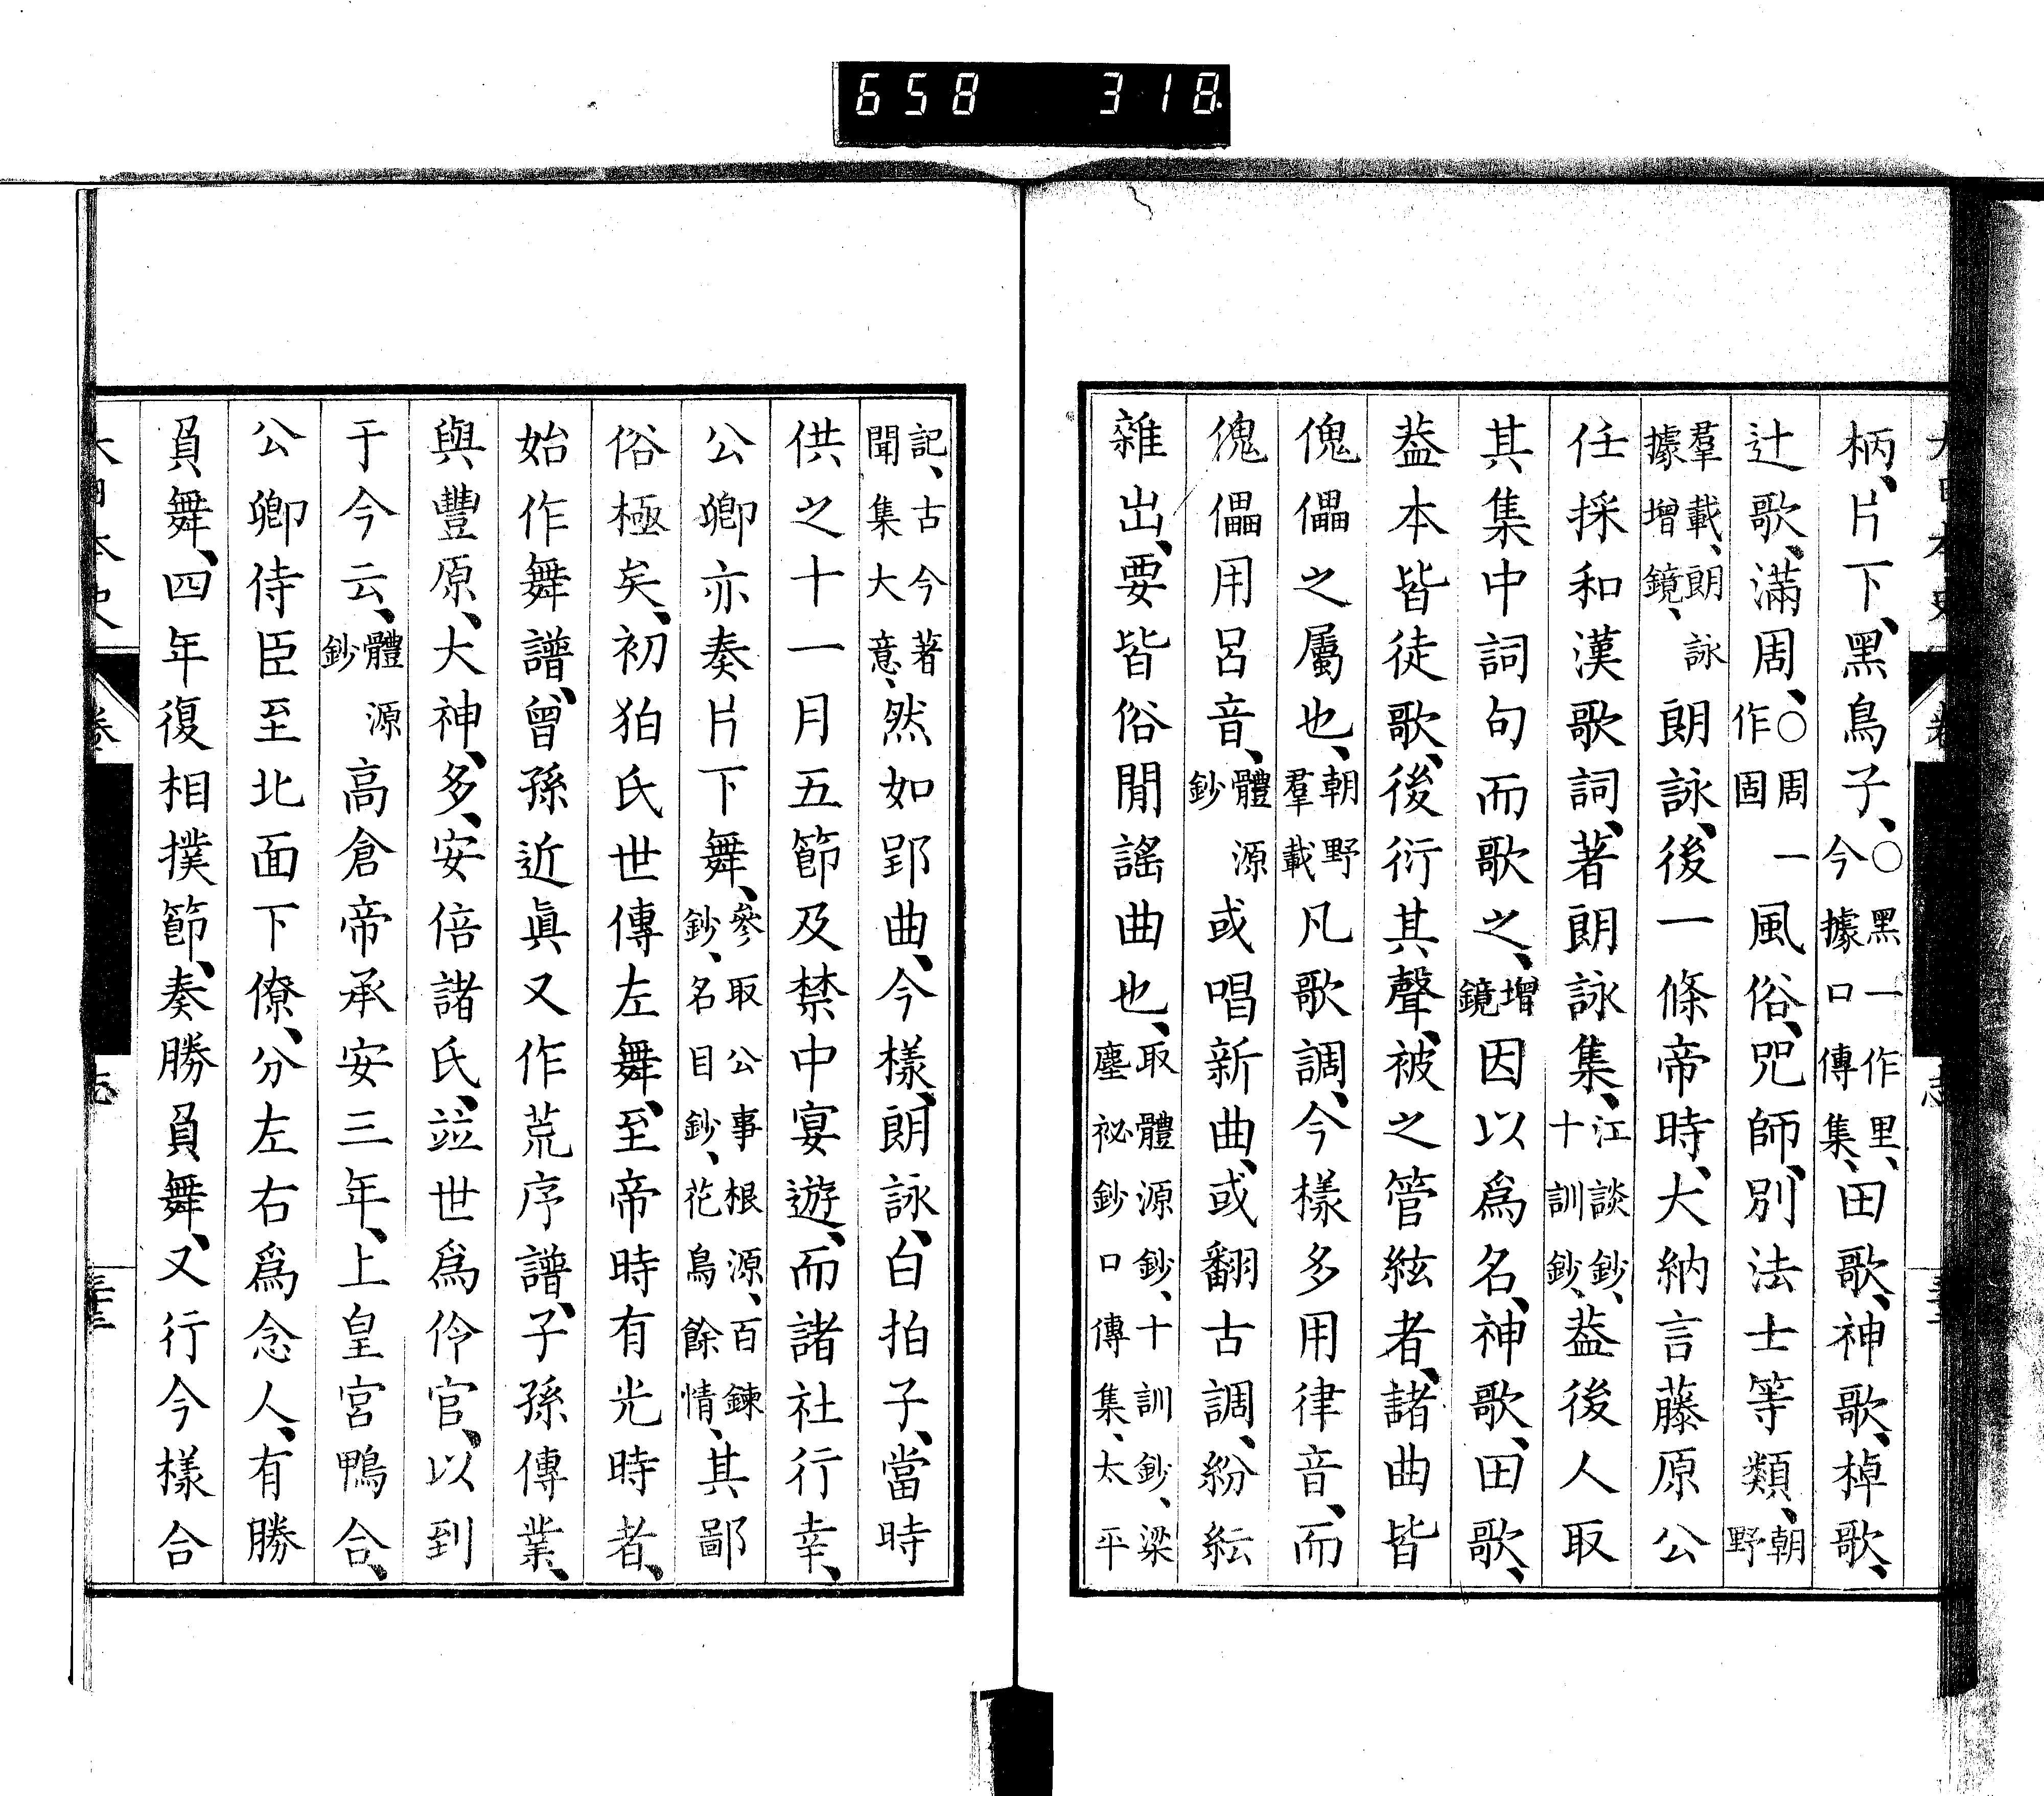 658 318
柄、片下、黑鳥子、○黑一作里、今據口傳集、田歌、神歌、棹歌、
辻歌、滿周、○周一作固風俗、咒師、別法士等類、朝野
羣載、朗詠據增鏡、朗詠、後一條帝時、大納言藤原公
任採和漢歌詞、著朗詠集、江談鈔、十訓鈔、葢後人取
其集中詞句而歌之、增鏡因以爲名、神歌、田歌、
葢本皆徒歌、後衍其聲、被之管絃者、諸曲皆
傀儡之屬也、朝野羣載凡歌調、今樣多用律音、而
傀儡用呂音、體源鈔或唱新曲、或翻古調、紛紜
雜出、要皆俗閒謠曲也、取體源鈔、十訓鈔、梁塵祕鈔口傳集、太平
記、古今著聞集大意、然如郢曲、今樣、朗詠、白拍子、當時
供之十一月五節及禁中宴遊、而諸社行幸、
公卿亦奏片下舞、參取公事根源、百鍊鈔、名目鈔、花鳥餘情、其鄙
俗極矣、初狛氏世傳左舞、至帝時有光時者、
始作舞譜、曾孫近眞又作荒序譜、子孫傳業、
與豐原、大神、多、安倍諸氏、竝世爲伶官、以到
于今云、體源鈔高倉帝承安三年、上皇宮鴨合、
公卿侍臣至北面下僚、分左右爲念人、有勝
負舞、四年復相撲節、奏勝負舞、又行今樣合